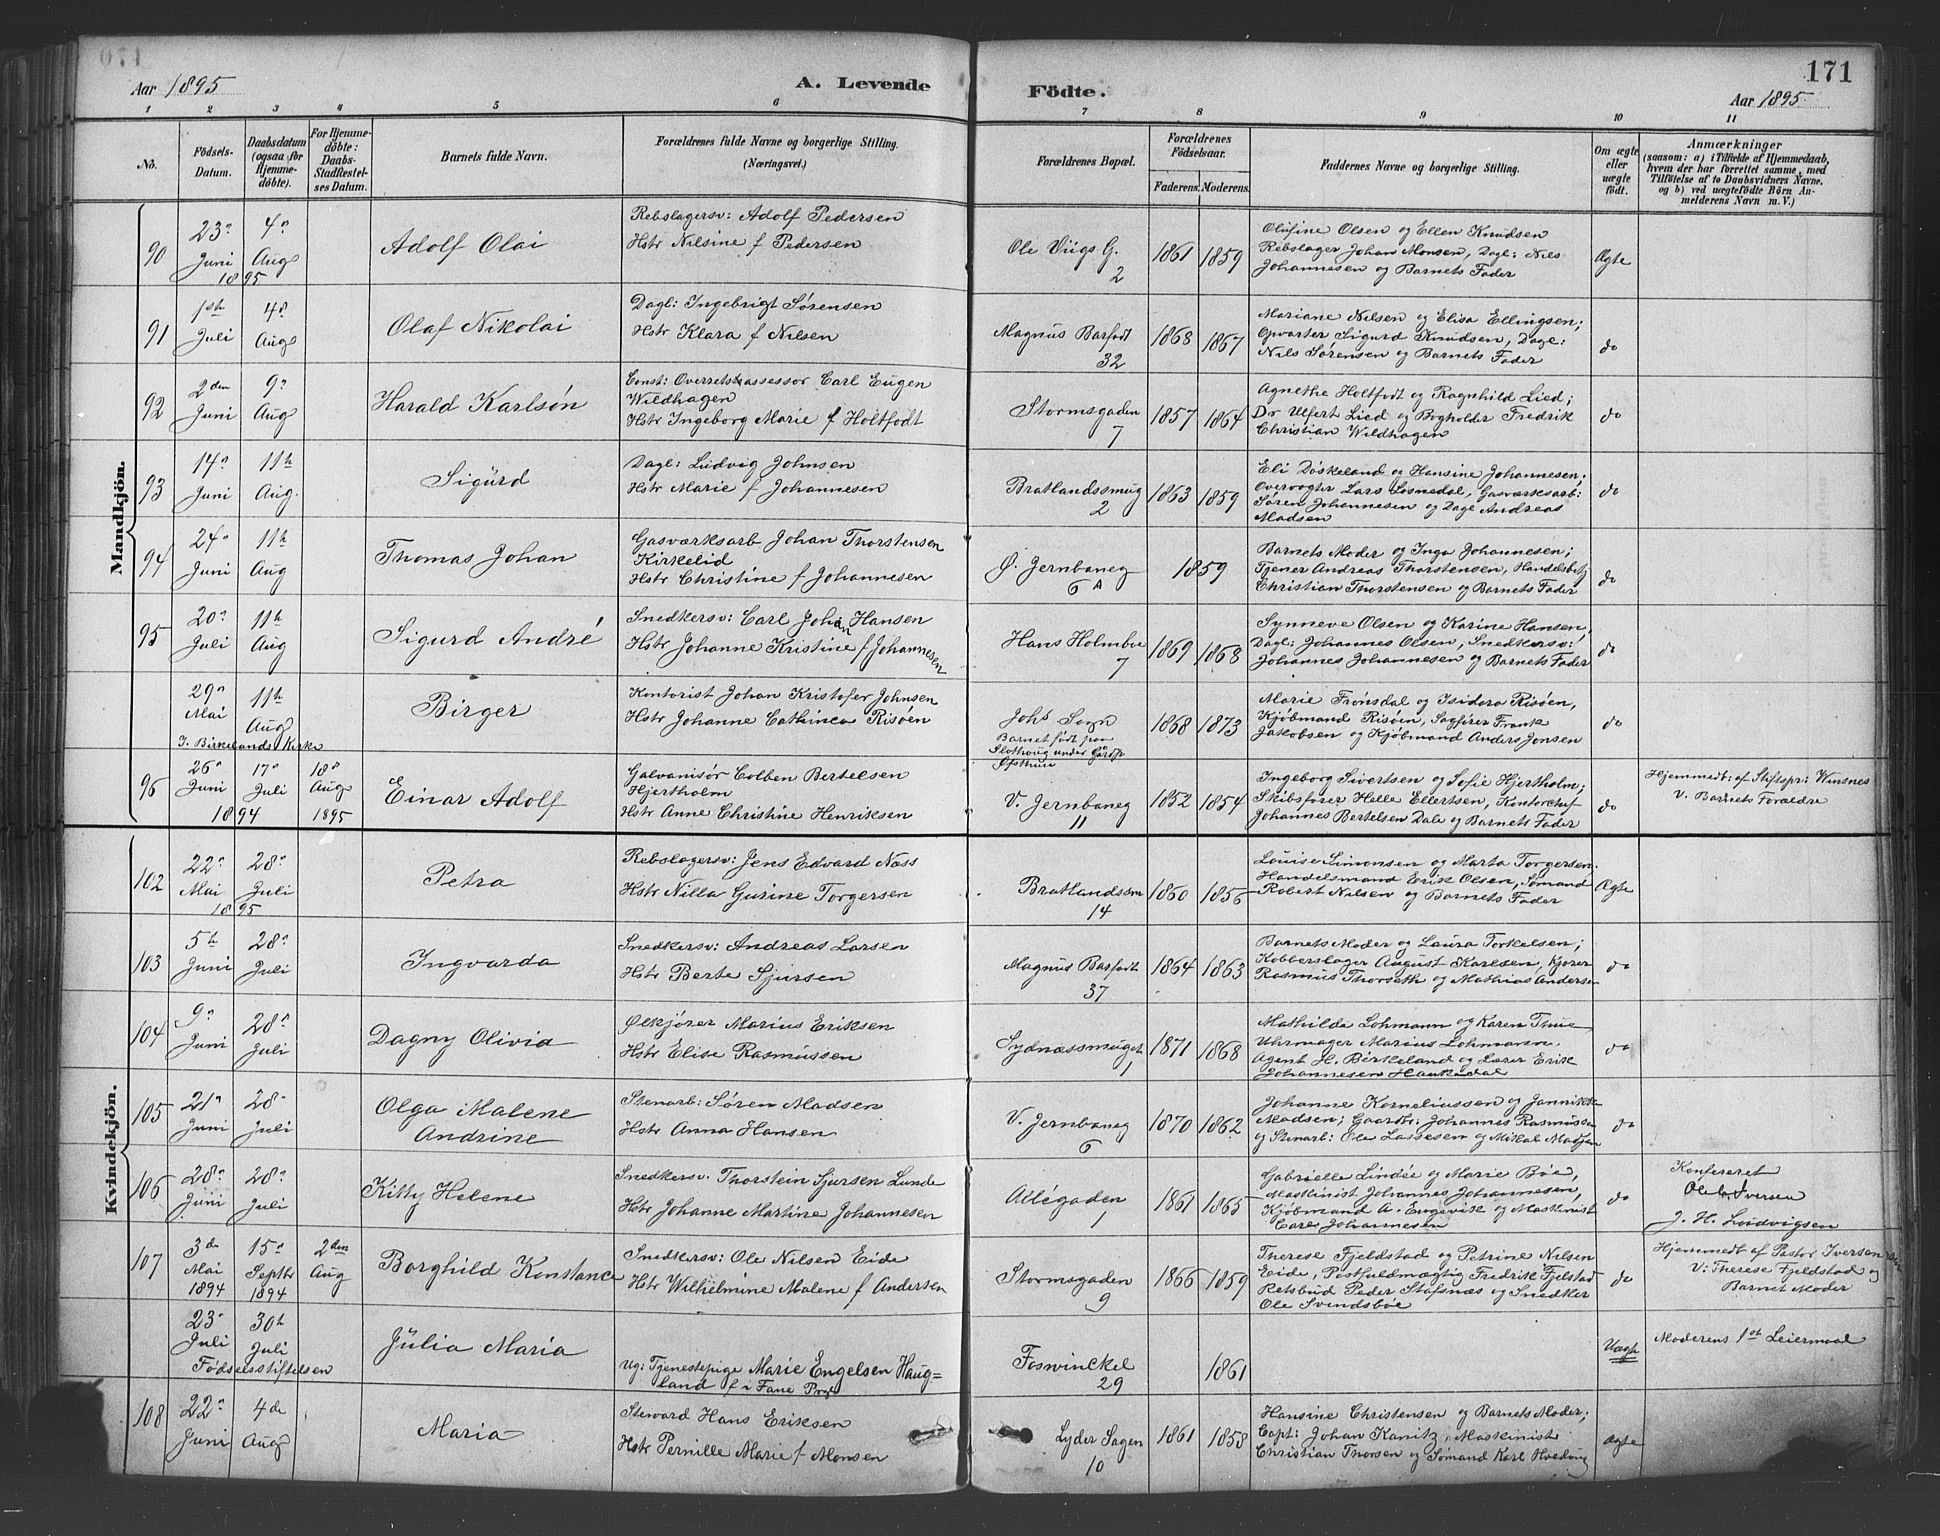 Aar 1895
A. Levende
Födte.
171
Aar 1895
1 2 3 4 5 6 7 8 9 10 11
No.
Födsels-Datum.
Daabsdatum (ogsaa for Hjemme-döbte).
For Hjemme-döbte: Daabs-Stadfæstel-ses Datum.
Barnets fulde Navn.
Forældrenes fulde Navne og borgerlige Stilling. (Næringsvei.)
Forældrenes Bopæl.
Forældrenes Födselsaar.
Faderens. Moderens.
Faddernes Navne og borgerlige Stilling.
Om ægte eller uægte födt.
Anmærkninger
(saasom: a) i Tilfælde af Hjemmedaab, hvem der har forrettet samme, med Tilföielse af to Daabsvidners Navne, og b) ved uægtefödte Börn Anmelderens Navn m. V.)
Mandkjön.
90 23de Juni 1895 4de Aug
Adolf Olai
Rebslagersv: Adolf Pedersen
Hstr Nilsine f Pedersen
Ole Viigs G. 2
1861 1859
Olufine Olsen og Ellen Knudsen
Rebslager Johan Monsen, Dagl: Nils
Johannesen og Barnets Fader
Ægte
91 1ste Juli 4de Aug
Olaf Nikolai
Dagl: Ingebrigt Sørensen
Hstr Klara f Nilsen
Magnus Barfodt 32
1868 1867
Mariane Nilsen og Elisa Ellingsen;
Opvarter Sigurd Knudsen, Dagl:
Nils Sørensen og Barnets Fader
do
92 2den Juni 9de Aug
Harald Karlsøn
Const: Overretsassessor Carl Eugen
Wildhagen
Hstr Ingeborg Marie f Holtfodt
Stormsgaden 7
1857 1864
Agnethe Holtfodt og Ragnhild Lied;
Dr Ulfert Lied og Bogholder Fredrik
Christian Wildhagen
do
93 14de Juni 11te Aug.
Sigurd
Dagl: Ludvig Johnsen
Hstr Marie f Johannesen
Bratlandssmug 2
1863 1859
Eli Døskeland og Hansine Johannesen;
Overvogter Lars Losnedal, Gasværksarb:
Søren Johannesen og Dagl Andreas
Madsen
do
94 24de Juni 11te Aug
Thomas Johan
Gasværksarb Johan Thorstensen
Kirkelid
Hstr Christine f Johannesen
Ø. Jernbaneg 6 A
1859
Barnets Moder og Inga Johannesen;
Tjener Andreas Thorstensen, Handelsbetj
Christian Thorstensen og Barnets Fader
do
95 20de Juli 11te Aug
Sigurd André
Snedkersv: Carl Johan Hansen
Hstr Johanne Kristine f Johannesen
Hans Holmboe 7
1869 1868
Synneve Olsen og Karine Hansen,
Dagl: Johannes Olsen, Snedkersv:
Johannes Johannesen og Barnets Fader
do
29de Mai 11te Aug
I. Birkelands Kirke
Birger
Kontorist Johan Kristofer Johnsen
Hstr Johanne Cathinca Risøen
Johs Sogn
Barnet født paa
Slothoug under Gårds
Øfsthun
1868 1873
Marie Frønsdal og Isidora Risøen,
Kjøbmand Risøen, Sagfører Frank
Jakobsen og Kjøbmand Anders Jonsen
do
96 26de Juni 1894 17de Juli 18de Aug 1895
Einar Adolf
Galvanisør Colben Bertelsen
Hjertholm
Hstr Anne Christine Henriksen
V. Jernbaneg 11
1852 1854
Ingeborg Sivertsen og Sofie Hjertholm;
Skibsfører Helle Ellertsen, Kontorchef
Johannes Bertelsen Dale og Barnets Fader
do
Hjemmedt: af Stiftspr: Winsnes
V. Barnets Forældre
Kvindekjön.
102 22de Mai 1895 28de Juli
Petra
Rebslagersv: Jens Edvard Næss
Hstr Nilla Gurine Torgersen
Bratlandssm 14
1860 1856
Louise Simonsen og Marta Torgersen,
Handelsmand Erik Olsen, Sømand
Robert Nilsen og Barnets Fader
Ægte
103 5te Juni 28de Juli
Ingvarda
Snedkersv: Andreas Larsen
Hstr Berte Sjursen
Magnus Barfodt 37
1864 1863
Barnets Moder og Laura Torkelsen;
Kobberslager August Karlsen, Kjører
Rasmus Thorseth og Mathias Andersen
do
104 9de Juni 28de Juli
Dagny Olivia
Ølkjører Marius Eriksen
Hstr Elise Rasmussen
Sydnæssmuget 1
1871 1868
Mathilde Lohmann og Karen Thue
Uhrmager Marius Lohmann,
Agent H. Birkeland og Lærer Erik
Johannesen Haukedal
do
105 21de Juni 28de Juli
Olga Malene
Andrine
Stenarb: Søren Madsen
Hstr Anna Hansen
V. Jernbaneg 6
1870 1862
Johanne Korneliussen og Jannikke
Madsen; Gaardbr: Johannes Rasmussen
og Stenarb: Ole Lassesen og Mikal Madsen
do
106 28de Juni 28de Juli
Kitty Helene
Snedkersv. Thorstein Sjursen Lunde
Hstr Johanne Martine Johannesen
Allégaden 1
1861 1865
Gabrielle Lindée og Marie Bøe,
Maskinist Johannes Johannesen,
Kjøbmand A. Engevik og Maskinist
Carl Johannesen
do
Konfereret
Ole Iversen
J. H. Ludvigsen
107 3de Mai 1894 15de Septbr 1894 2den Aug
Borghild Konstance
Snedkersv: Ole Nilsen Eide
Hstr Wilhelmine Malene f Andersen
Stormsgaden 9
1866 1859
Therese Fjeldstad og Petrine Nilsen
Eide, Postfuldmægtig Fredrik Fjelstad
Retsbud Peder Stafsnæs og Snedker
Ole Svindsbøe
do
Hjemmedt af Pastor Iversen
V: Therese Fjeldstad og
Barnet Moder
23de Juli 30te Juli
Fødselsstiftelsen
Julia Maria
Ug: Tjenestepige Marie Engelsen Haug-
land f i Fane Prgj
Foswinckel 29
1861
Uægte
Moderens 1ste Leiermaal
108 22de Juni 4de Aug
Maria
Steward Hans Eriksen
Hstr Pernille Marie f Monsen
Lyder Sagen 10
1861 1858
Hansine Christensen og Barnets Moder;
Capt: Johan Kanitz, Maskinist
Christian Thorsen og Sømand Karl Hvedung
Ægte